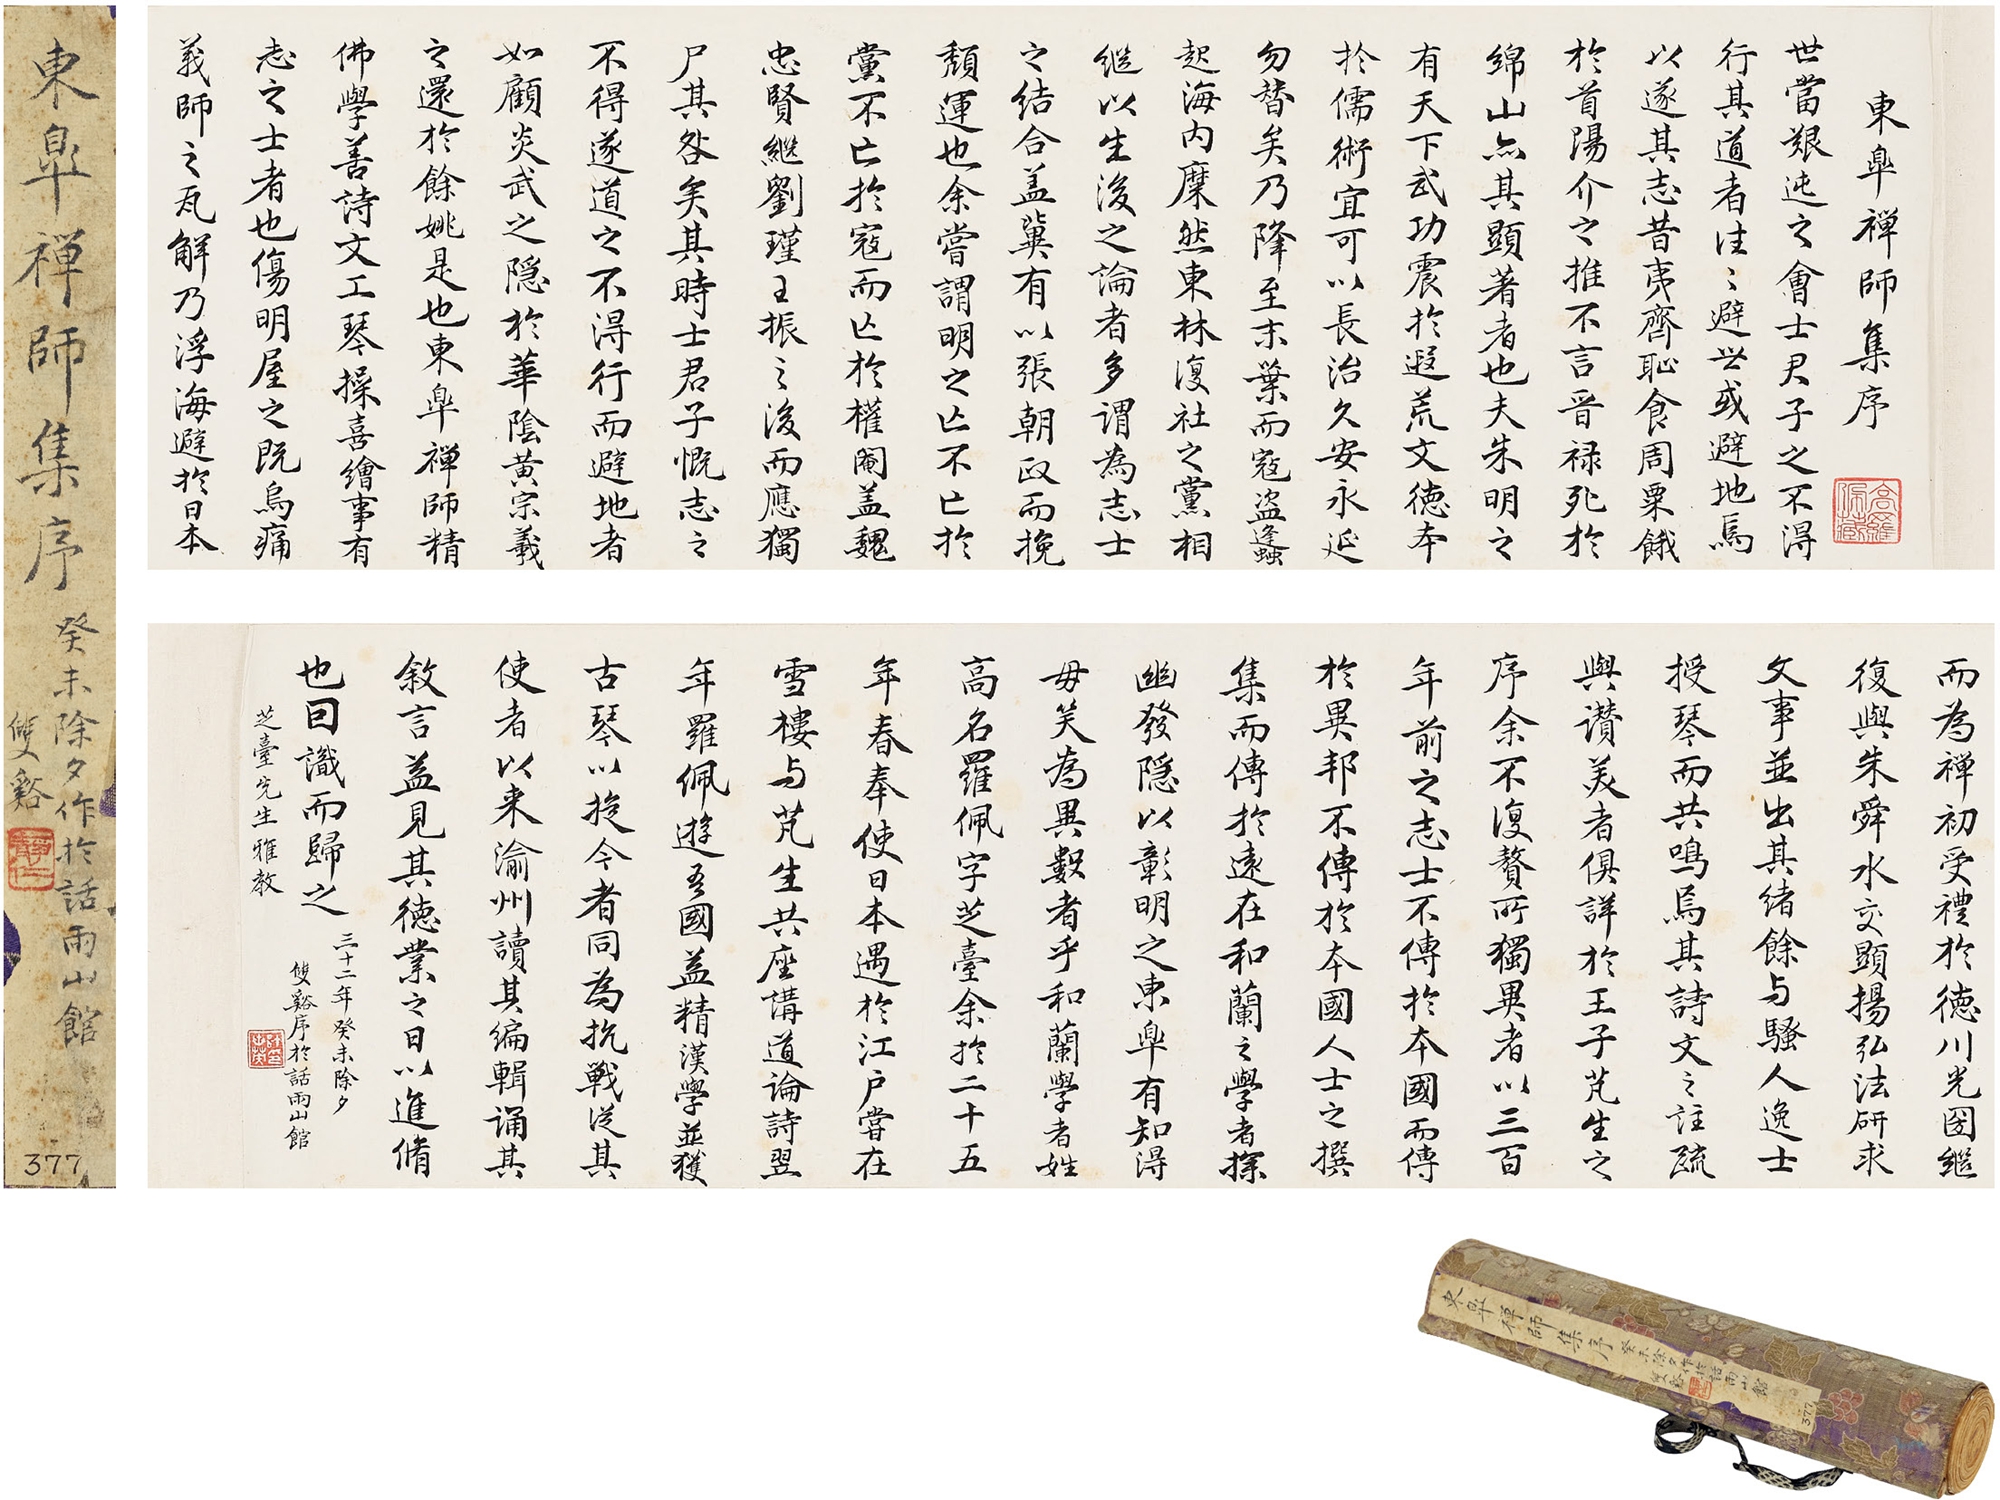 東皐禪師集序
癸未除夕作於話雨山館
雙谿
377
東皐禪師集序
世當艱迍之會士君子之不得
行其道者往〻避世或避地焉
以遂其志昔夷齊恥食周粟餓
於首陽介之推不言晉祿死於
綿山亦其顯著者也夫朱明之
有天下武功震於遐荒文德本
於儒術宜可以長治久安永延
勿替矣乃降至末葉而寇盜蠭
起海內糜然東林復社之黨相
繼以生後之論者多謂為志士
之結合蓋冀有以張朝政而挽
頹運也余嘗謂明之亡不亡於
黨不亡於寇而亡於權閹蓋魏
忠賢繼劉瑾王振之後而應獨
尸其咎矣其時士君子慨志之
不得遂道之不得行而避地者
如顧炎武之隱於華陰黃宗羲
之還於餘姚是也東皐禪師精
佛學善詩文工琴操喜繪事有
志之士者也傷明屋之既烏痛
義師之瓦解乃浮海避於日本
而為禪初受禮於德川光圀繼
復與朱舜水交顯揚弘法研求
文事並出其緒餘与騷人逸士
授琴而共鳴焉其詩文之註疏
與讚美者俱詳於王子芃生之
序余不復贅所獨異者以三百
年前之志士不傳於本國而傳
於異邦不傳於本國人士之撰
集而傳於遠在和蘭之學者探
幽發隱以彰明之東皐有知得
毋笑為異數者乎和蘭學者姓
高名羅佩字芝臺余於二十五
年春奉使日本遇於江戶嘗在
雪樓与芃生共座講道論詩翌
年羅佩遊吾國益精漢學並獲
古琴以旋今者同為抗戰從其
使者以來渝州讀其編輯誦其
敘言益見其德業之日以進脩
也囙識而歸之
三十二年癸未除夕
雙谿序於話雨山館
芝臺先生雅教
東皐禪師集序
癸未除夕作於話雨山館
雙谿
377